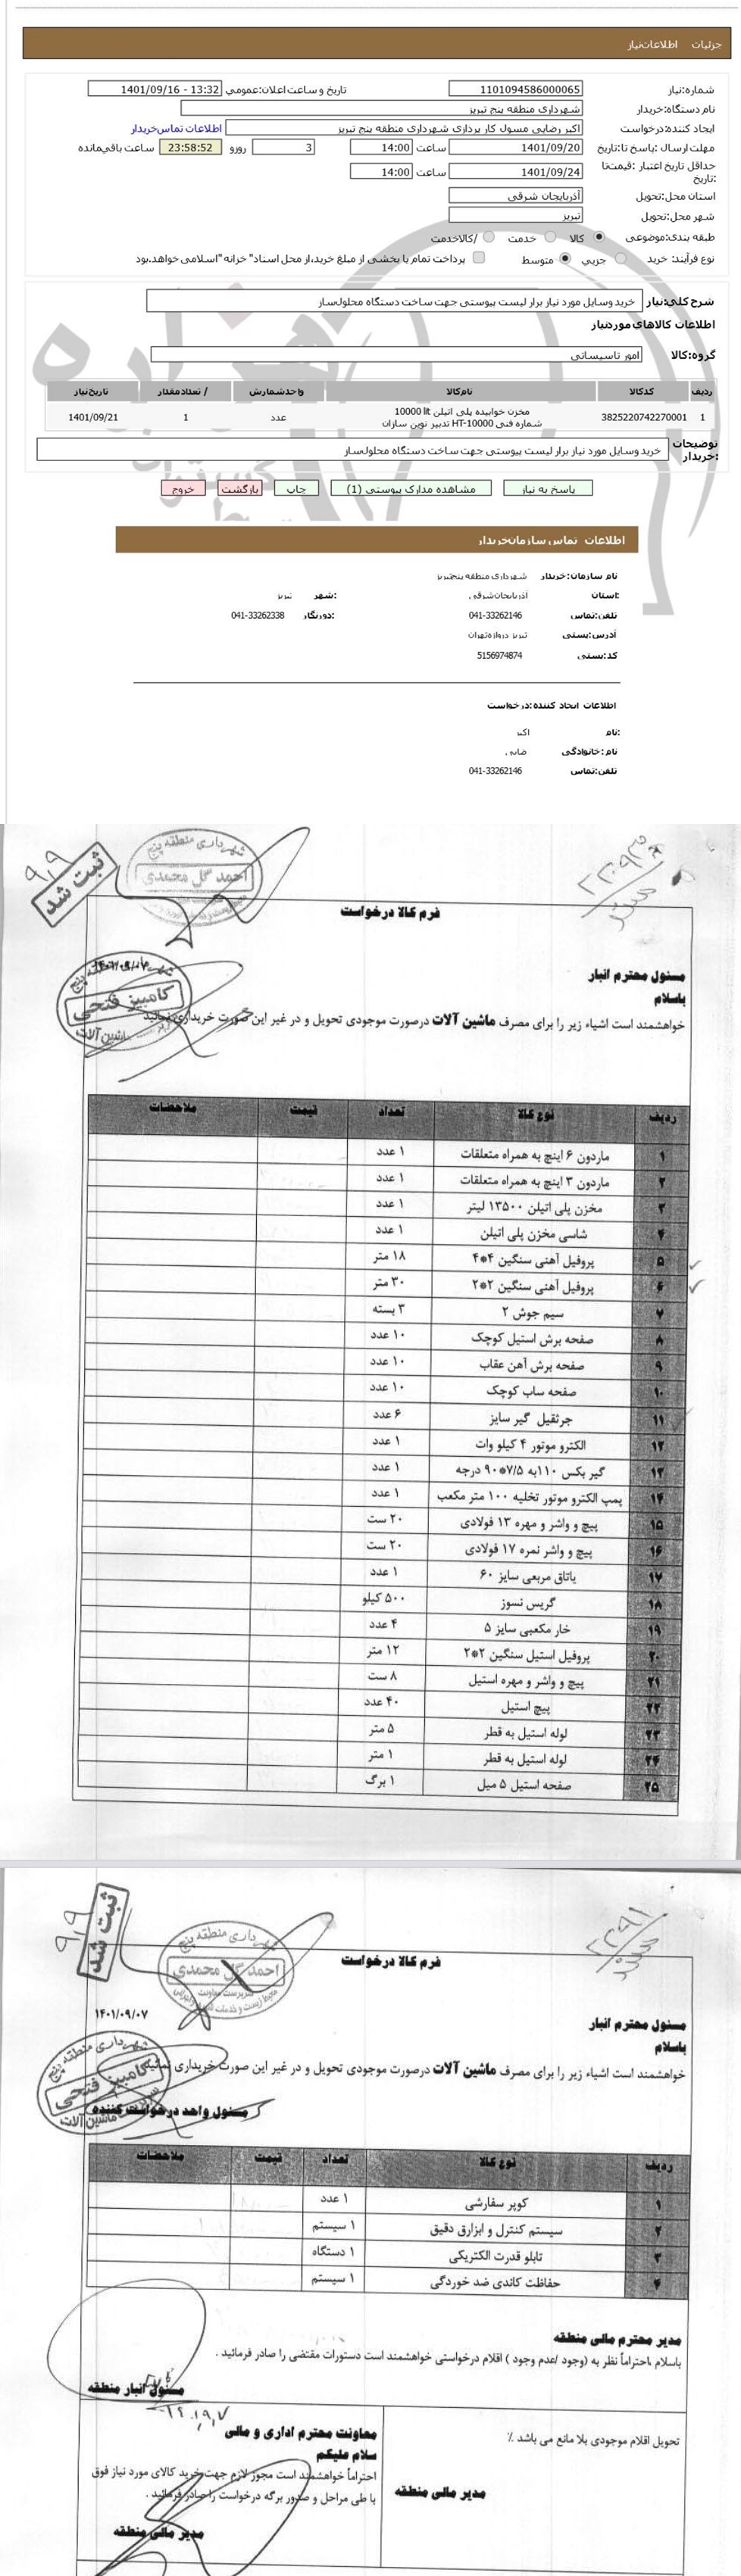 جزئیات اطلاعات‌نیاز
شماره:نیاز 1101094586000065 تاریخ و ساعت اعلان:عمومی 1401/09/16 - 13:32
نام دستگاه:خریدار شهرداری منطقه پنج تبریز
ایجاد کننده:درخواست اکبر رضایی مسول کار پردازی شهرداری منطقه پنج تبریز اطلاعات تماس‌خریدار
مهلت ارسال :پاسخ تا:تاریخ 1401/09/20 ساعت 14:00 3 روزو 23:58:52 ساعت باقی‌مانده
حداقل تاریخ اعتبار :قیمت‌تا 1401/09/24 ساعت 14:00
:تاریخ
استان محل:تحویل آذربایجان شرقی
شهر محل:تحویل تبریز
طبقه بندی:موضوعی کالا خدمت /کالاخدمت
نوع فرآیند: خرید جزیی متوسط پرداخت تمام یا بخشی از مبلغ خرید،از محل اسناد" خزانه "اسلامی خواهد.بود
شرح کلی:نیاز خرید وسایل مورد نیاز برار لیست پیوستی جهت ساخت دستگاه محلول‌ساز
اطلاعات کالاهای موردنیاز
گروه:کالا امور تاسیساتی
ردیف کدکالا نام‌کالا واحدشمارش / تعدادمقدار تاریخ‌نیاز
1 3825220742270001 مخزن خوابیده پلی اتیلن 10000 lit شماره فنی HT-10000 تدبیر نوین سازان عدد 1 1401/09/21
توضیحات :خریدار خرید وسایل مورد نیاز برار لیست پیوستی جهت ساخت دستگاه محلول‌ساز
پاسخ به نیاز مشاهده مدارک پیوستی (1) چاپ بازگشت خروج
اطلاعات تماس سازمان‌خریدار
نام سازمان:خریدار شهرداری منطقه پنج‌تبریز
:استان آذربایجان‌شرقی :شهر تبریز
تلفن:تماس 041-33262146 :دورنگار 041-33262338
آدرس:پستی تبریز دروازه‌تهران
کد:پستی 5156974874
اطلاعات ایجاد کننده:درخواست
:نام اکبر
نام:خانوادگی ضایی
تلفن:تماس 041-33262146
ثبت شد
شهرداری منطقه پنج
احمد گل محمدی
فرم کالا درخواست
۱۴۰۱/۰۹/۰۷
کامبیز فتحی
ماشین آلات
مسئول محترم انبار
باسلام
خواهشمند است اشیاء زیر را برای مصرف ماشین آلات درصورت موجودی تحویل و در غیر این صورت خریداری نمائید
ردیف نوع کالا تعداد قیمت ملاحضات
۱ ماردون ۶ اینچ به همراه متعلقات ۱ عدد
۲ ماردون ۳ اینچ به همراه متعلقات ۱ عدد
۳ مخزن پلی اتیلن ۱۳۵۰۰ لیتر ۱ عدد
۴ شاسی مخزن پلی اتیلن ۱ عدد
۵ پروفیل آهنی سنگین ۴*۴ ۱۸ متر
۶ پروفیل آهنی سنگین ۲*۲ ۳۰ متر
۷ سیم جوش ۲ ۳ بسته
۸ صفحه برش استیل کوچک ۱۰ عدد
۹ صفحه برش آهن عقاب ۱۰ عدد
۱۰ صفحه ساب کوچک ۱۰ عدد
۱۱ جرثقیل گیر سایز ۶ عدد
۱۲ الکترو موتور ۴ کیلو وات ۱ عدد
۱۳ گیر بکس ۱۱۰به ۷/۵*۹۰ درجه ۱ عدد
۱۴ پمپ الکترو موتور تخلیه ۱۰۰ متر مکعب ۱ عدد
۱۵ پیچ و واشر و مهره ۱۳ فولادی ۲۰ ست
۱۶ پیچ و واشر نمره ۱۷ فولادی ۲۰ ست
۱۷ یاتاق مربعی سایز ۶۰ ۱ عدد
۱۸ گریس نسوز ۵۰۰ کیلو
۱۹ خار مکعبی سایز ۵ ۴ عدد
۲۰ پروفیل استیل سنگین ۲*۲ ۱۲ متر
۲۱ پیچ و واشر و مهره استیل ۸ ست
۲۲ پیچ استیل ۴۰ عدد
۲۳ لوله استیل به قطر ۵ متر
۲۴ لوله استیل به قطر ۱ متر
۲۵ صفحه استیل ۵ میل ۱ برگ
ثبت شد
شهرداری منطقه پنج
احمد گل محمدی
فرم کالا درخواست
۱۴۰۱/۰۹/۰۷
مسئول محترم انبار
باسلام
خواهشمند است اشیاء زیر را برای مصرف ماشین آلات درصورت موجودی تحویل و در غیر این صورت خریداری نمائید
کامبیز فتحی
ماشین آلات
مسئول واحد درخواست کننده
ردیف نوع کالا تعداد قیمت ملاحضات
۱ کوپر سفارشی ۱ عدد
۲ سیستم کنترل و ابزارق دقیق ۱ سیستم
۳ تابلو قدرت الکتریکی ۱ دستگاه
۴ حفاظت کاندی ضد خوردگی ۱ سیستم
مدیر محترم مالی منطقه
باسلام .احتراماً نظر به (وجود /عدم وجود ) اقلام درخواستی خواهشمند است دستورات مقتضی را صادر فرمائید .
مسئول انبار منطقه
تحویل اقلام موجودی بلا مانع می باشد ٪
مدیر مالی منطقه
معاونت محترم اداری و مالی
سلام علیکم
احتراماً خواهشمند است مجوز لازم جهت خرید کالای مورد نیاز فوق
با طی مراحل و صدور برگه درخواست را صادر فرمائید .
مدیر مالی منطقه